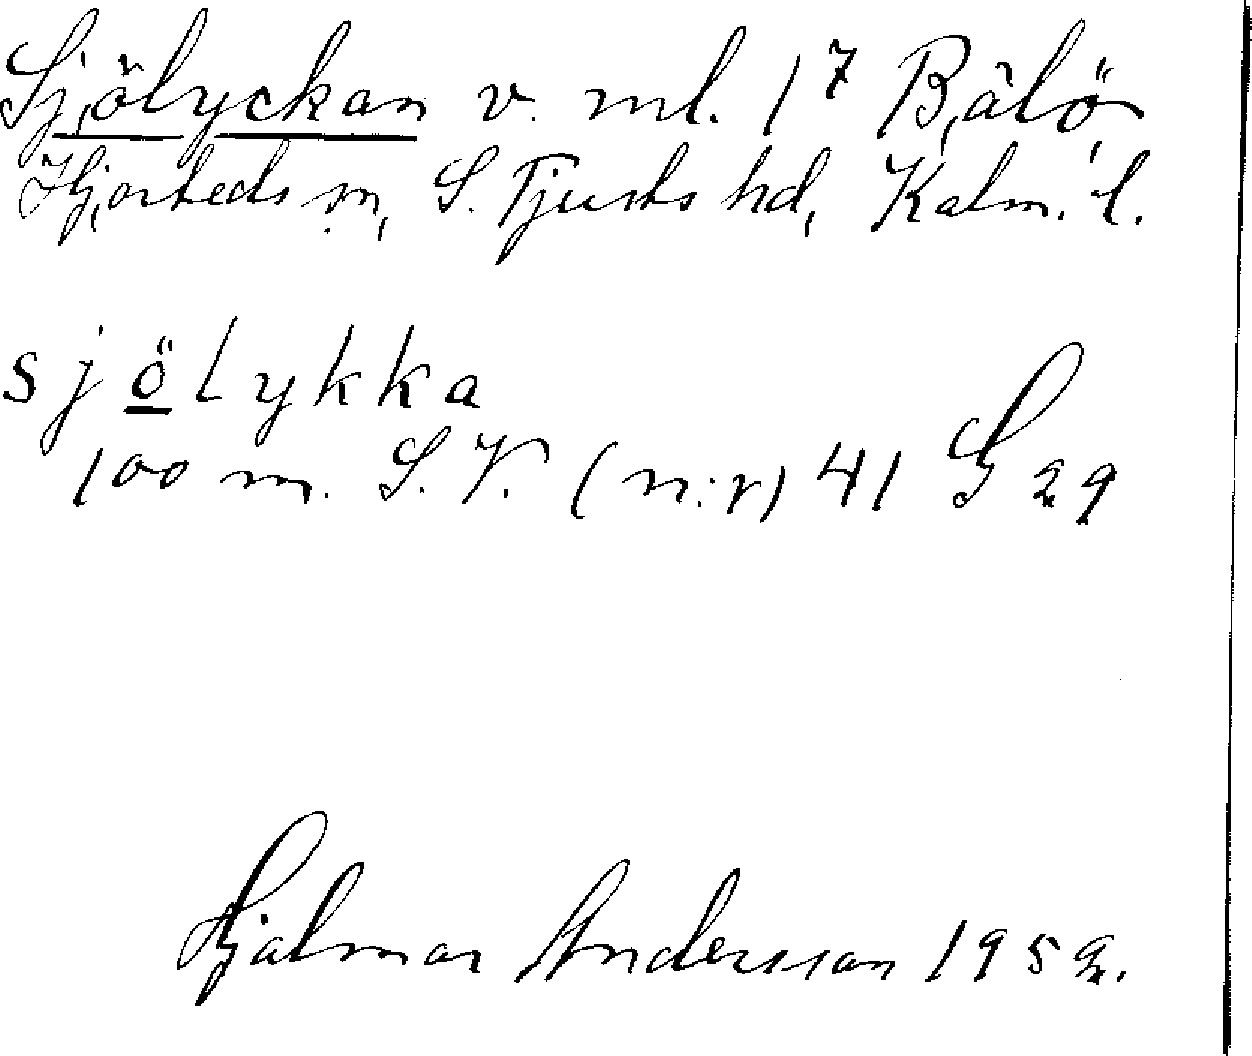 Sjölyckan v. ml. 1⁷ Bålö,
Hjorteds sn, S. Tjusts hd, Kalm. l.
sjölykka
100 m. S.V. (n:r) 41 G 29
Hjalmar Andersson 1952.